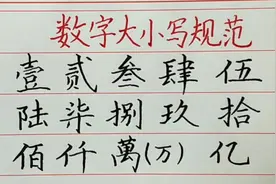 数字大小写规范
壹贰叁肆伍
陆柒捌玖拾
佰仟萬(万)亿